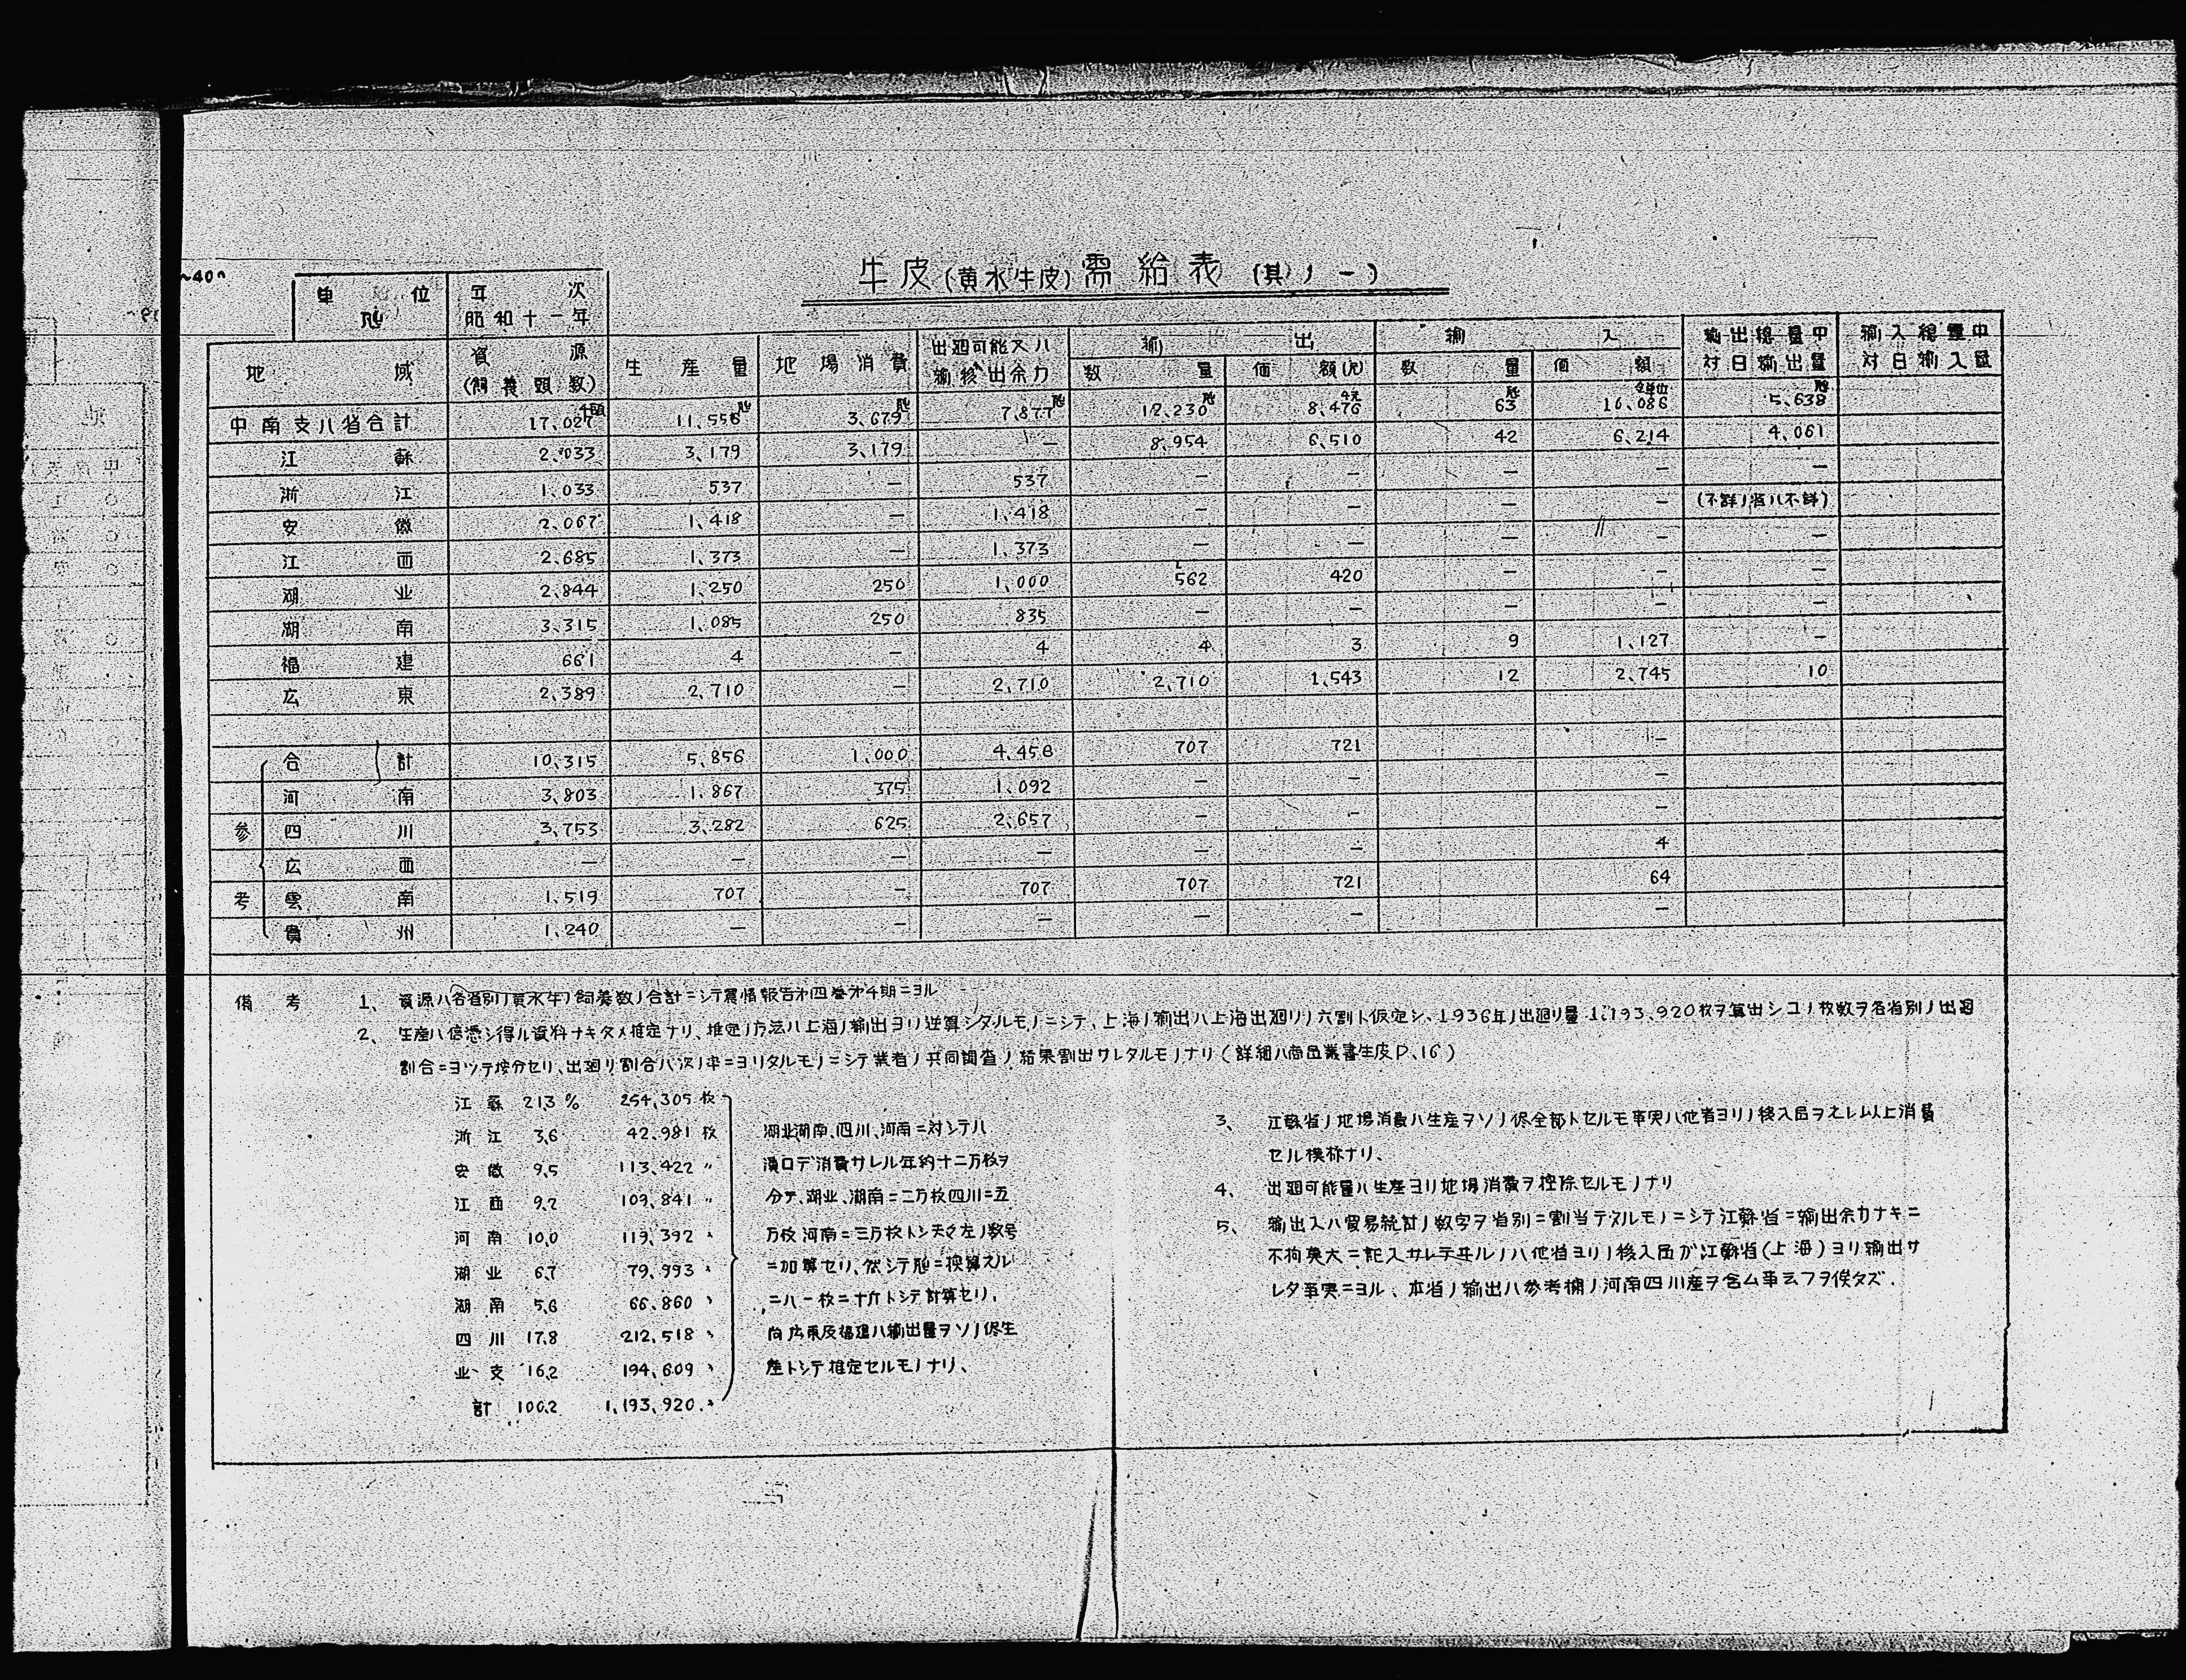 ~40~
牛皮(黄水牛皮)需給表 (其ノ一)
単位 瓲 年次 昭和十一年
地域 資源(飼養頭数) 生産量 地場消費 出廻可能又ハ輸移出余力 輸出 数量 価額(元) 輸入 数量 価額 輸出総量中対日輸出量 輸入総量中対日輸入量
中南支八省合計 17,027千頭 11,556瓲 3,679瓲 7,877瓲 12,230瓲 8,476千元 63瓲 16,086 5,638瓲
江蘇 2,033 3,179 3,179 — 8,954 6,510 42 6,214 4,061
浙江 1,033 537 — 537 — — — — —
安徽 2,067 1,418 — 1,418 — — — — (不詳ノ省ハ不詳)
江西 2,685 1,373 — 1,373 — — — — —
湖北 2,844 1,250 250 1,000 562 420 — — —
湖南 3,315 1,085 250 835 — — — — —
福建 661 4 — 4 4 3 9 1,127 —
広東 2,389 2,710 — 2,710 2,710 1,543 12 2,745 10
参考
合計 10,315 5,856 1,000 4,458 707 721 —
河南 3,803 1,867 375 1,092 — — —
四川 3,753 3,282 625 2,657 — — —
広西 — — — — — — 4
雲南 1,519 707 — 707 707 721 64
貴州 1,240 — — — — — —
備考 1、資源ハ各省別ノ黄水牛ノ飼養数ノ合計ニシテ農情報告才四巻才4期ニヨル
2、生産ハ信憑シ得ル資料ナキタメ推定ナリ、推定ノ方法ハ上海ノ輸出ヨリ逆算シタルモノニシテ、上海ノ輸出ハ上海出廻リノ六割ト仮定シ、1936年ノ出廻リ量 1,193,920枚ヲ算出シコノ枚数ヲ各省別ノ出廻
割合ニヨツテ按分セリ、出廻リ割合ハ次ノ率ニヨリタルモノニシテ業者ノ共同調査ノ結果割出サレタルモノナリ(詳細ハ商品叢書生皮P、16)
江蘇 21.3% 254,305枚
浙江 3.6 42,981枚
安徽 9.5 113,422〃
江西 9.2 109,841〃
河南 10.0 119,392〃
湖北 6.7 79,993〃
湖南 5.6 66,860〃
四川 17.8 212,518〃
北支 16.2 194,609〃
計 100.2 1,193,920〃
湖北湖南、四川、河南ニ対シテハ
漢口デ消費サレル年約十二万枚ヲ
分テ、湖北、湖南ニ二万枚四川ニ五
万枚河南ニ三万枚トシ夫々左ノ数号
ニ加算セリ、然シテ瓲ニ換算スル
ニハ一枚ニ十斤トシテ計算セリ、
尚広東及福建ハ輸出量ヲソノ侭生
産トシテ推定セルモノナリ、
3、江蘇省ノ地場消費ハ生産ヲソノ侭全部トセルモ事実ハ他省ヨリノ移入品ヲ之レ以上消費
セル模様ナリ、
4、出廻可能量ハ生産ヨリ地場消費ヲ控除セルモノナリ
5、輸出入ハ貿易統計ノ数字ヲ省別ニ割当テタルモノニシテ江蘇省ニ輸出余力ナキニ
不拘莫大ニ記入サレテヰルノハ他省ヨリノ移入品ガ江蘇省(上海)ヨリ輸出サ
レタ事実ニヨル、本省ノ輸出ハ参考欄ノ河南四川産ヲ含ム事云フヲ俟タズ.